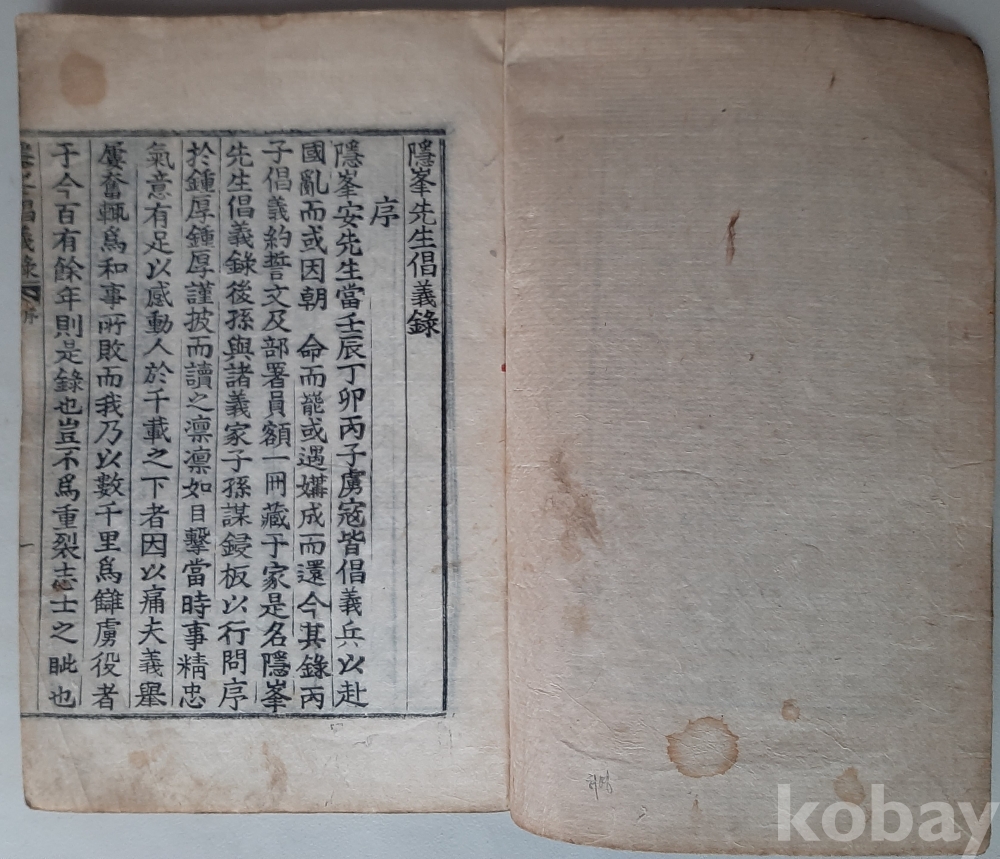 隱峯先生倡義錄
序
隱峯安先生當壬辰丁卯丙子虜寇皆倡義兵以赴
國亂而或因朝 命而罷或遇媾成而還今其錄丙
子倡義約誓文及部署員額一冊藏于家是名隱峯
先生倡義錄後孫與諸義家子孫謀鋟板以行問序
於鍾厚鍾厚謹披而讀之凛凛如目擊當時事精忠
氣意有足以感動人於千載之下者因以痛夫義舉
屢奮輒爲和事所敗而我乃以數千里爲讎虜役者
于今百有餘年則是錄也豈不爲重裂志士之眦也
倡義錄
序
kobay